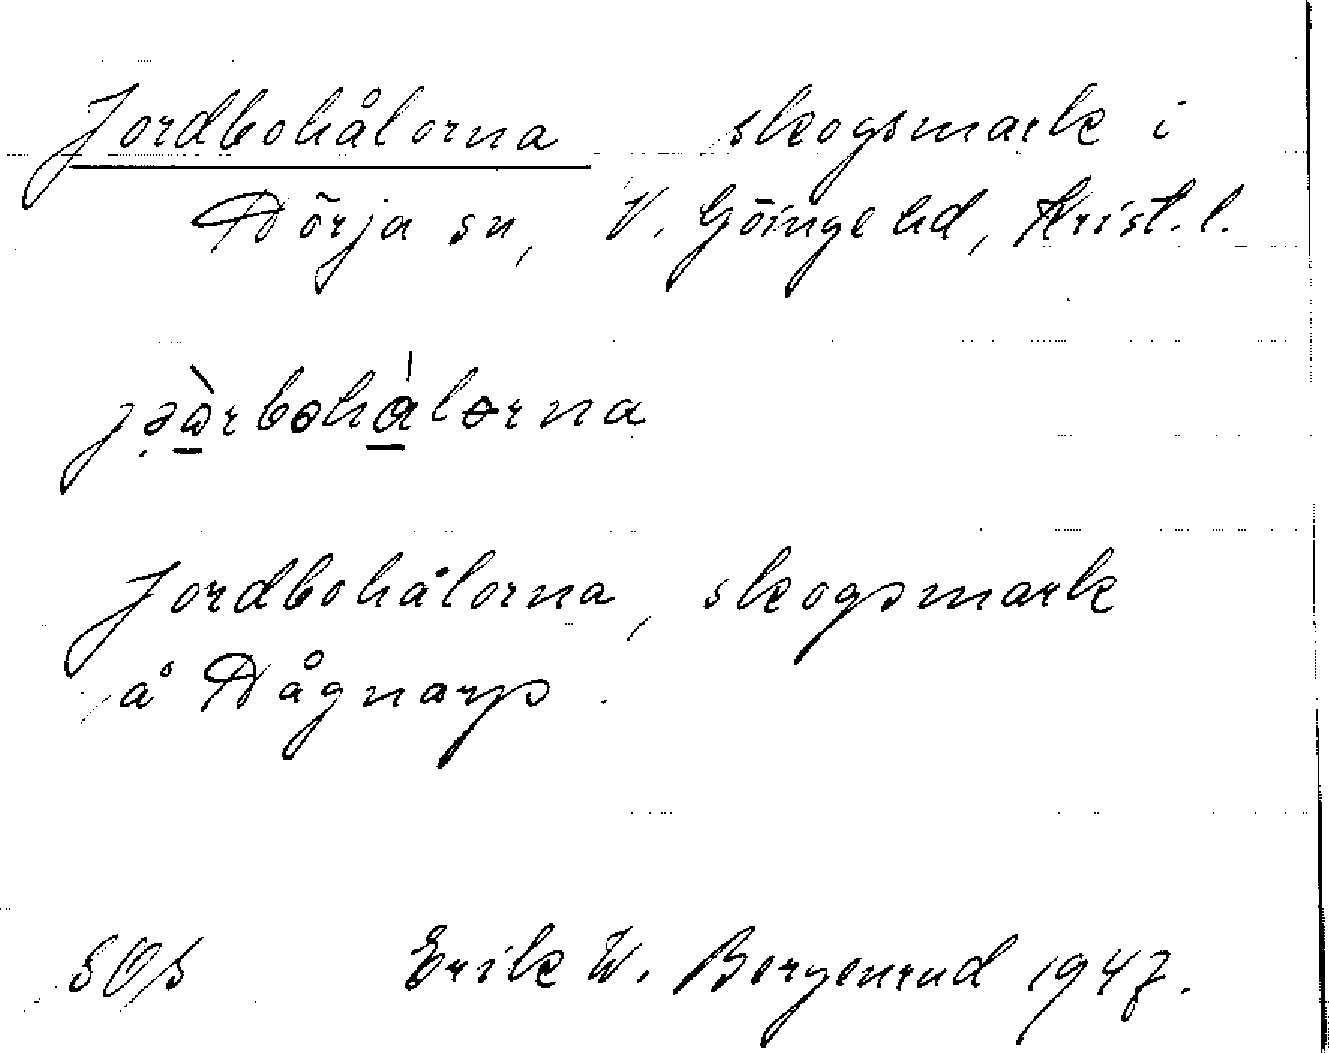 Jordbohålorna skogsmark i
Nörja sn, V. Göinge hd, Krist. l.
Jordbohålorna, skogsmark
å Någnarp.
Erik W. Bergenrud 1947.